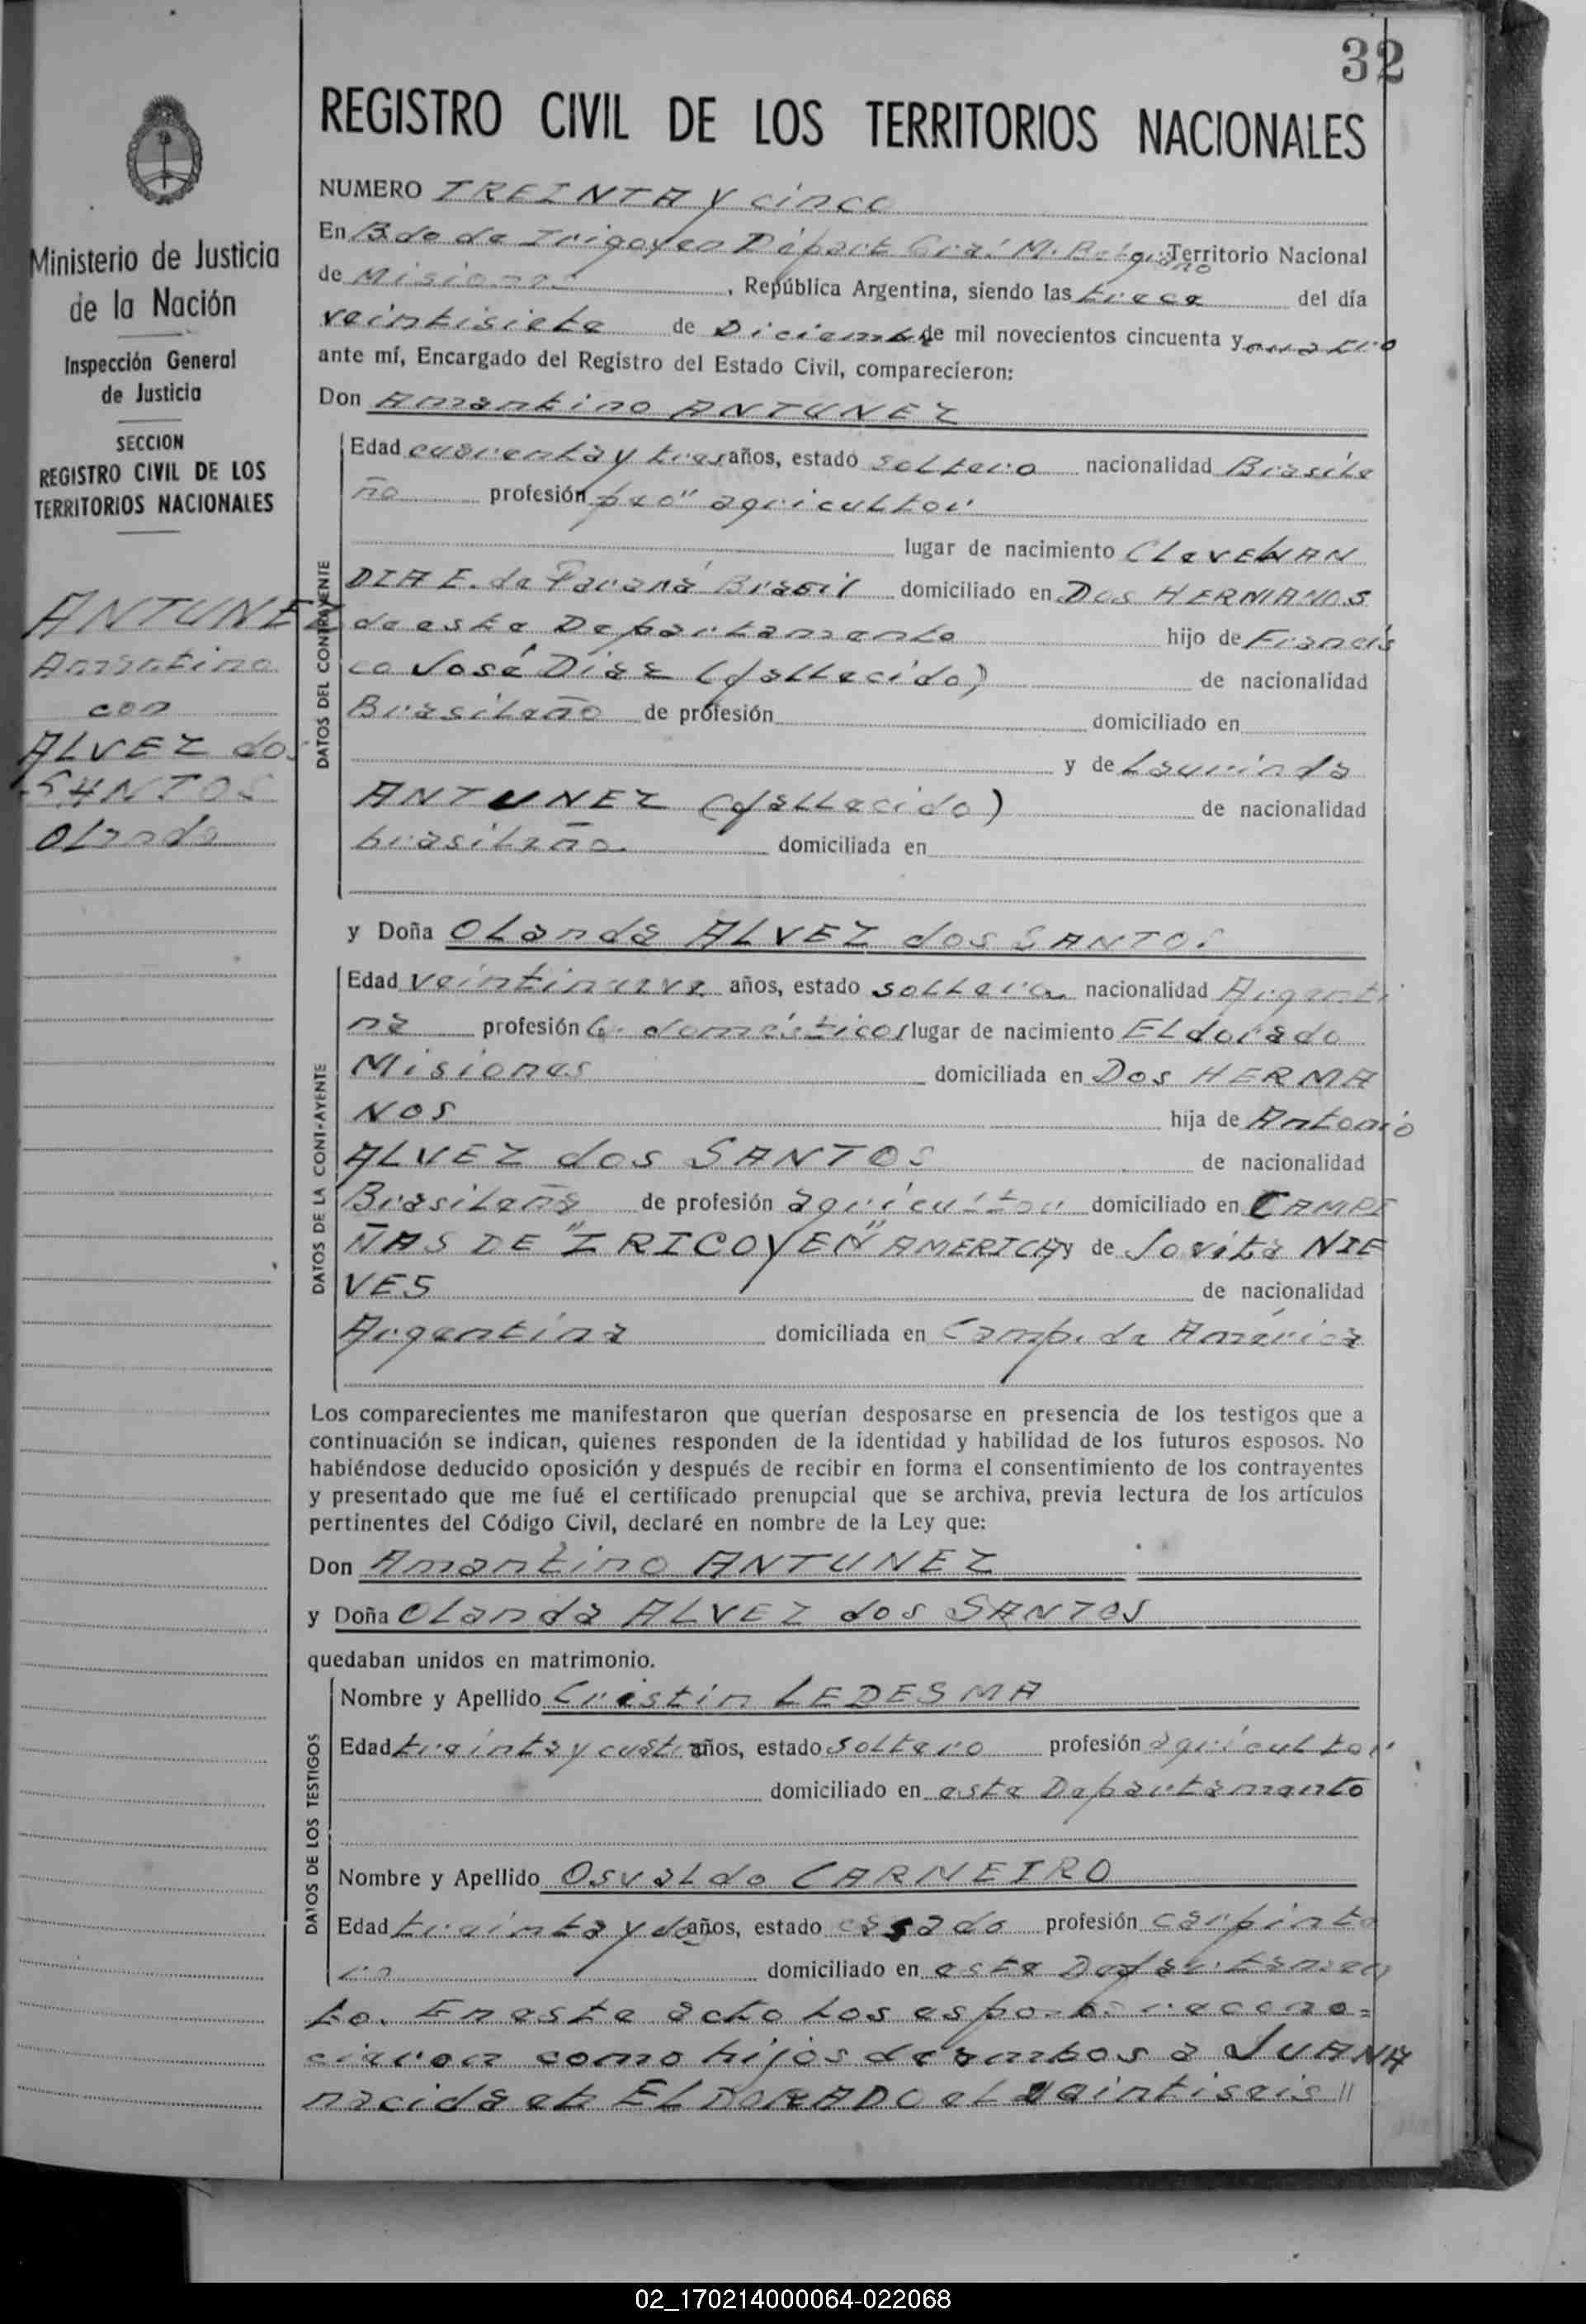 32
REGISTRO CIVIL DE LOS TERRITORIOS NACIONALES
Ministerio de Justicia
de la Nación
Inspección General
de Justicia
SECCION
REGISTRO CIVIL DE LOS
TERRITORIOS NACIONALES
ANTUNEZ
Amantino
con
ALVEZ dos
SANTOS
Olanda
NUMERO TREINTA y cinco
En Bdo de Irigoyen Depart Gral M. Belgrano Territorio Nacional
de Misiones, República Argentina, siendo las trece del día
veintisiete de Diciembre de mil novecientos cincuenta y cuatro
ante mí, Encargado del Registro del Estado Civil, comparecieron:
Don Amantino ANTUNEZ
DATOS DEL CONTRAYENTE
Edad cuarenta y tres años, estado soltero nacionalidad Brasile
ño profesión agricultor
lugar de nacimiento CLEVELAN
DIA E. de Paraná Brasil domiciliado en Dos HERMANOS
de este Departamento hijo de Francis
co José Diaz (fallecido) de nacionalidad
Brasileño de profesión domiciliado en
y de Laurinda
ANTUNEZ (fallecido) de nacionalidad
brasileña domiciliada en
y Doña Olanda ALVEZ dos SANTOS
DATOS DE LA CONTRAYENTE
Edad veintinueve años, estado soltera nacionalidad Argenti
na profesión q. domésticos lugar de nacimiento Eldorado
Misiones domiciliada en Dos HERMA
NOS hija de Antonio
ALVEZ dos SANTOS de nacionalidad
Brasileña de profesión agricultor domiciliado en CAMPI
ÑAS DE "IRIGOYEN" AMERICA y de Jovita NIE
VES de nacionalidad
Argentina domiciliada en Camp. de América
Los comparecientes me manifestaron que querían desposarse en presencia de los testigos que a
continuación se indican, quienes responden de la identidad y habilidad de los futuros esposos. No
habiéndose deducido oposición y después de recibir en forma el consentimiento de los contrayentes
y presentado que me fué el certificado prenupcial que se archiva, previa lectura de los artículos
pertinentes del Código Civil, declaré en nombre de la Ley que:
Don Amantino ANTUNEZ
y Doña Olanda ALVEZ dos SANTOS
quedaban unidos en matrimonio.
DATOS DE LOS TESTIGOS
Nombre y Apellido Cristin LEDESMA
Edad treinta y cuatro años, estado soltero profesión agricultor
domiciliado en este Departamento
Nombre y Apellido Osvaldo CARNEIRO
Edad treinta y dos años, estado casado profesión carpinte
ro domiciliado en este Departamen
to. En este acto los esposos recono=
cieron como hijos de ambos a JUANA
nacida en ELDORADO el veintiseis //
02_170214000064-022068